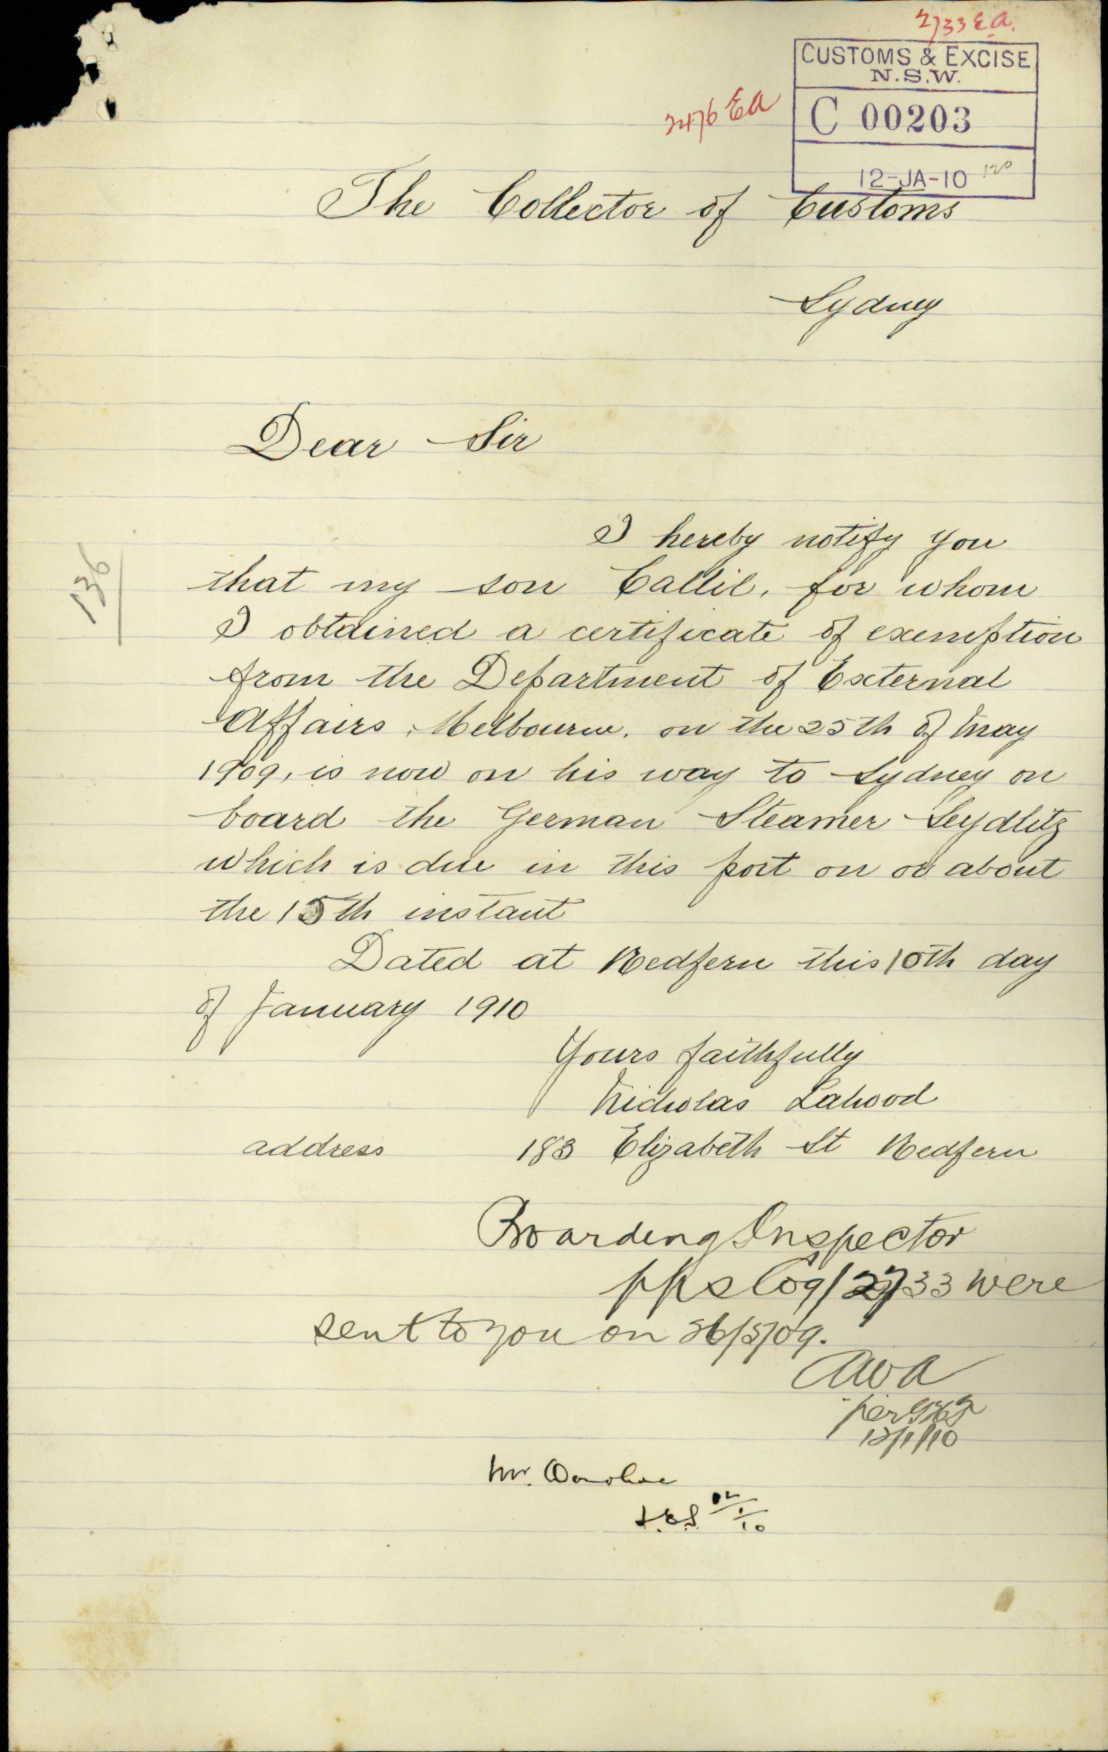 2733 E.A.
CUSTOMS & EXCISE
N.S.W.
2476 EA
C 00203
12-JA-10
The Collector of Customs
Sydney
Dear Sir
I hereby notify you
that my son Callil, for whom
I obtained a certificate of exemption
from the Department of External
Affairs, Melbourne, on the 25th of May
1909, is now on his way to Sydney on
board the German Steamer Seydlitz
which is due in this port on or about
the 15th instant
Dated at Redfern this 10th day
of January 1910
Yours faithfully
Nicholas Lahood
address 183 Elizabeth St Redfern
136
Boarding Inspector
pps C09/2733 were
sent to you on 26/5/09.
AWA
per
12/1/10
Mr. Donohoe